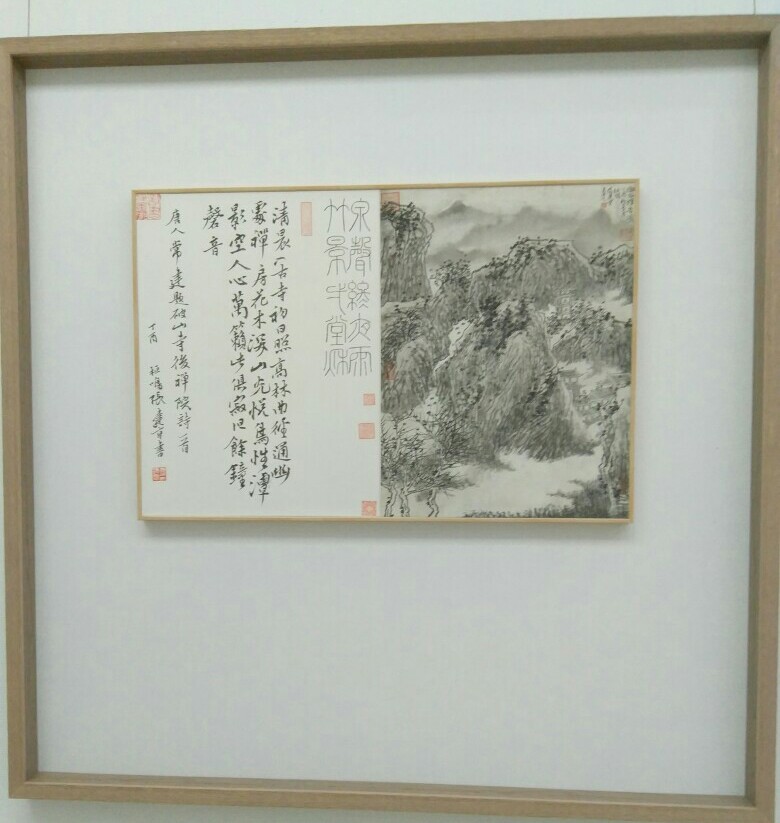 泉聲終夜雨
竹景弌堂秋
清晨入古寺初日照高林曲徑通幽
處禪房花木深山光悅鳥性潭
影空人心萬籟此俱寂但餘鐘
磬音
唐人常建題破山寺後禪院詩一首
丁酉
張書